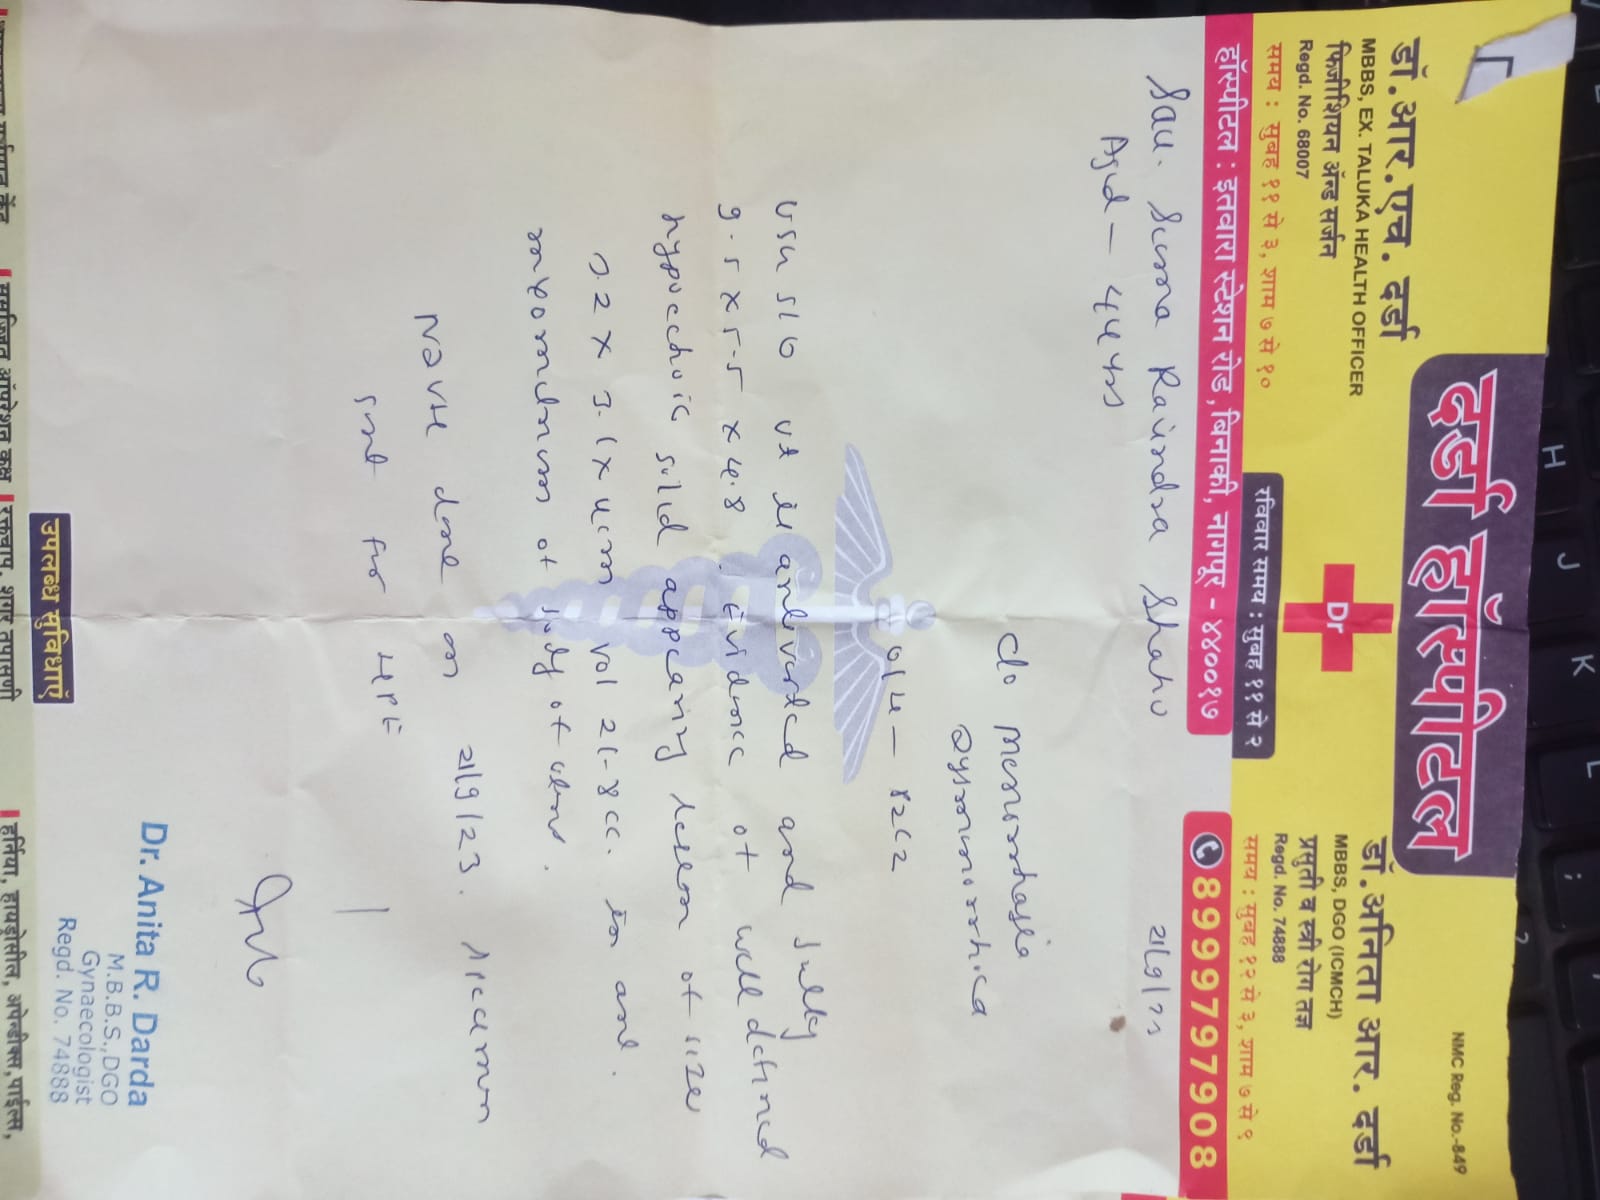 NMC Reg. No.-849
दर्डा हॉस्पीटल
डॉ.आर.एच. दर्डा
MBBS, EX. TALUKA HEALTH OFFICER
फिजीशियन ॲन्ड सर्जन
Regd. No. 68007
समय : सुबह ११ से ३, शाम ७ से १०
Dr
रविवार समय : सुबह ११ से २
डॉ.अनिता आर. दर्डा
MBBS, DGO (ICMCH)
प्रसुती व स्त्री रोग तज्ञ
Regd. No. 74888
समय : सुबह १२ से ३, शाम ७ से ९
हॉस्पीटल : इतवारा स्टेशन रोड, बिनाकी, नागपूर - ४४००१७
8999797908
Sau. Sunna Ravindra Shahu
Aged - 44 yrs
c/o menorrhagia
Dysmenorrhica
O/H - P2L2
USG S/O ut is antiverted and bulky
9.5 x 5.5 x 4.8 Evidence of well defined
hypoechoic solid appearing lesion of size
3.2 x 3.1 x 4 cm vol 21.8 cc. in ant.
myometrium of body of uterus.
NDVH done on 2/9/23. specimen
sent for HPE
Dr. Anita R. Darda
M.B.B.S.,DGO
Gynaecologist
Regd. No. 74888
उपलब्ध सुविधाएं
रक्तचाप, शुगर तपासणी
हर्निया, हायड्रोसील, अपेन्डीक्स, पाईल्स,
H
J
K
L